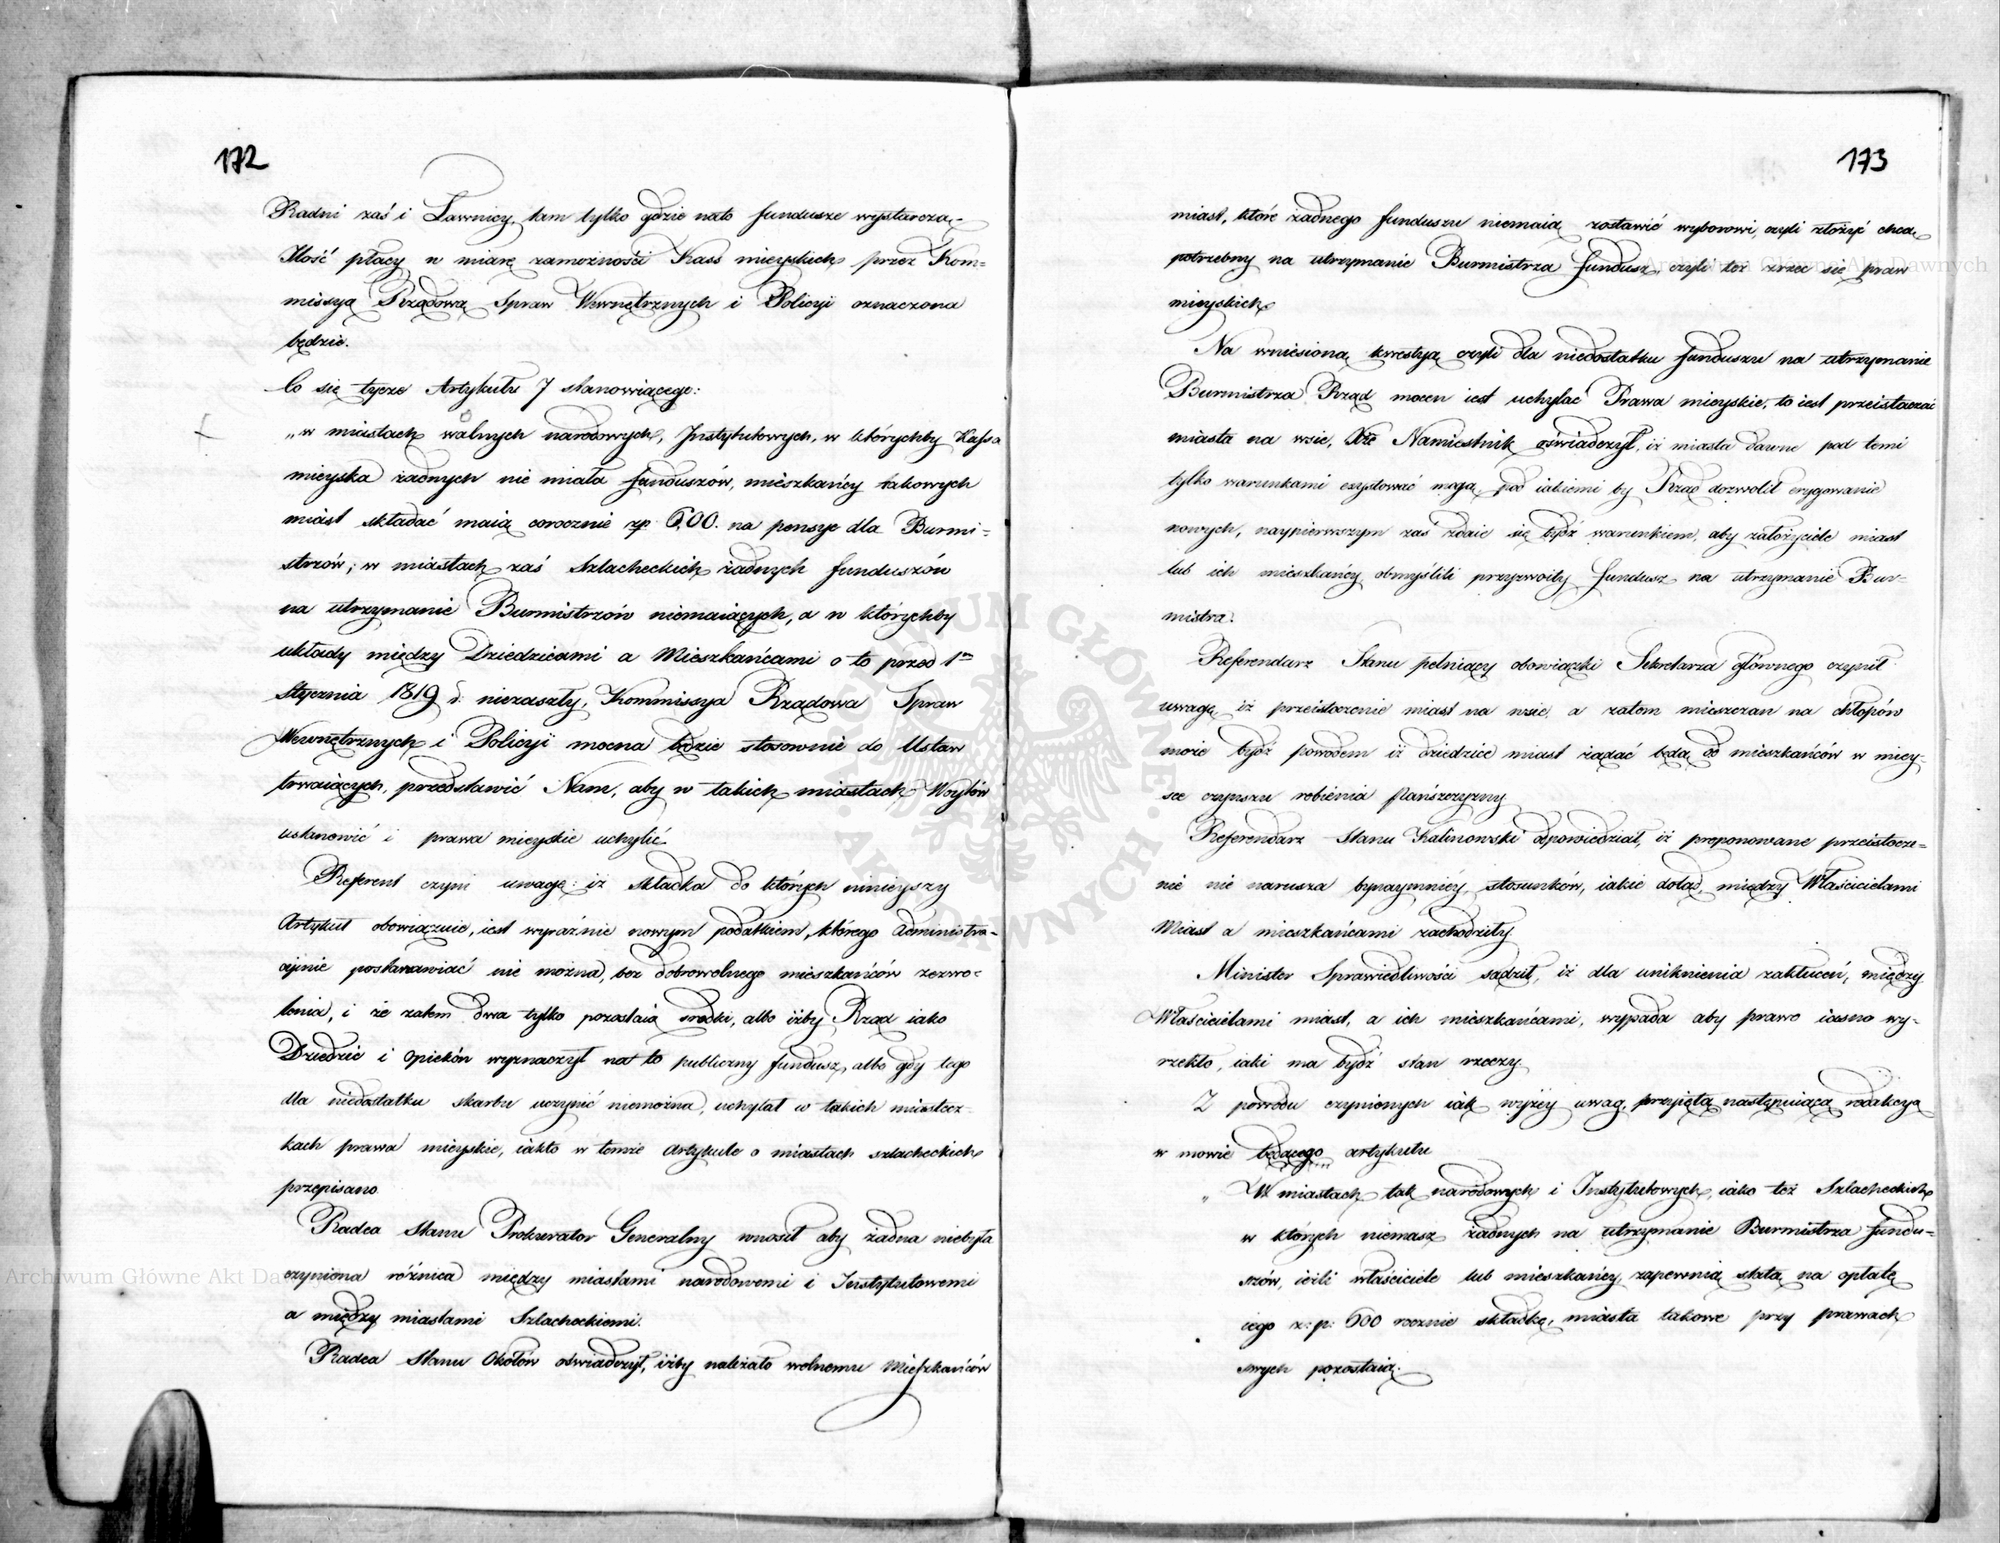 172
Radni zaś i Ławnicy, tam tylko gdzie nato fundusze wystarczą,-
Ilość płacy w miarę zamożności Kass mieyskich przez Kom=
missyą Rządową Spraw Wewnętrznych i Policyi oznaczona
będzie.
Co się tycze Artykułu 7 stanowiącego:
„w miastach wolnych narodowych, Instytutowych, w którychby Kassa
mieyska żadnych nie miała funduszów, mieszkańcy takowych
miast składać maią corocznie zp. 600. na pensye dla Burmi=
strzów; w miastach zaś Szlacheckich żadnych funduszów
na utrzymanie Burmistrzów niemaiących, a w którychby
układy między Dziedzicami a Mieszkańcami o to przed 1m
Stycznia 1819 r. niezaszły, Kommissya Rządowa Spraw
Wewnętrznych i Policyi mocna będzie stosownie do Ustaw
trwaiących, przedstawić Nam, aby w takich miastach Woytów
ustanowić i prawa mieyskie uchylić.
Referent czyni uwagę: iż składka do których ninieyszy
Artykuł obowiązuie, iest wyraźnie nowym podatkiem, którego Administra-
cyinie postanawiać nie można, bez dobrowolnego mieszkańców zezwo=
lenia, i że zatem dwa tylko pozostaią srodki, albo iżby Rząd iako
Dziedzic i Opiekun wyznaczył na to publiczny fundusz, albo gdy tego
dla niedostatku skarbu uczynić niemożna, uchylał w takich miastecz=
kach prawa mieyskie, iakto w temże Artykule o miastach szlacheckich
przepisano.
Radca Stanu Prokurator Generalny wnosił aby żadna niebyła
czyniona różnica między miastami narodowemi i Instytutowemi
a między miastami Szlacheckiemi.
Radca Stanu Okołów oświadczył, iżby należało wolnemu Mieszkańców
173
miast, które żadnego funduszu niemaią zostawić wyborowi, czyli złożyć chcą
potrzebny na utrzymanie Burmistrza fundusz, czyli też zrzec się praw
mieyskich.
Na wniesioną kwestyą czyli dla niedostatku funduszu na utrzymanie
Burmistrza Rząd mocen iest uchylać Prawa mieyskie, to iest przeistaczać
miasta na wsie, Xże Namiestnik oświadczył, iż miasta dawne pod temi
tylko warunkami exystować mogą, pod iakiemi by Rząd dozwolił erygowanie
nowych, naypierwszym zaś zdaie się bydź warunkiem, aby założyciele miast
lub ich mieszkańcy obmyślili przyzwoity fundusz na utrzymanie Bur=
mistra.
Referendarz Stanu pełniący obowiązki Sekretarza głównego czynił
uwagę, iż przeistoczenie miast na wsie, a zatem mieszczan na chłopów
może bydź powodem iż dziedzice miast żądać będą od mieszkańców w miey-
sce czynszu robienia Pańszczyzny.
Referendarz Stanu Kalinowski odpowiedział, iż proponowane przeistocze=
nie nie narusza bynaymniéy stosunków, iakie dotąd między Właścicielami
Miast a mieszkańcami zachodziły.
Minister Sprawiedliwości sądził, iż dla uniknienia zakłuceń, między
Właścicielami miast, a ich mieszkańcami, wypada aby prawo iasno wy-
rzekło, iaki ma bydź stan rzeczy.
Z powodu czynionych iak wyżéy uwag, przyięta następuiąca redakcya
w mowie będącego artykułu
„W miastach tak narodowych i Instytutowych, iako też Szlacheckich
w których niemasz żadnych na utrzymanie Burmistrza fundu=
szów, ieżli właściciele lub mieszkańcy zapewnią stałą na opłatę
iego z: p: 600 rocznie składkę, miasta takowe przy prawach
swych pozostaią.
Archiwum Główne Akt Dawnych